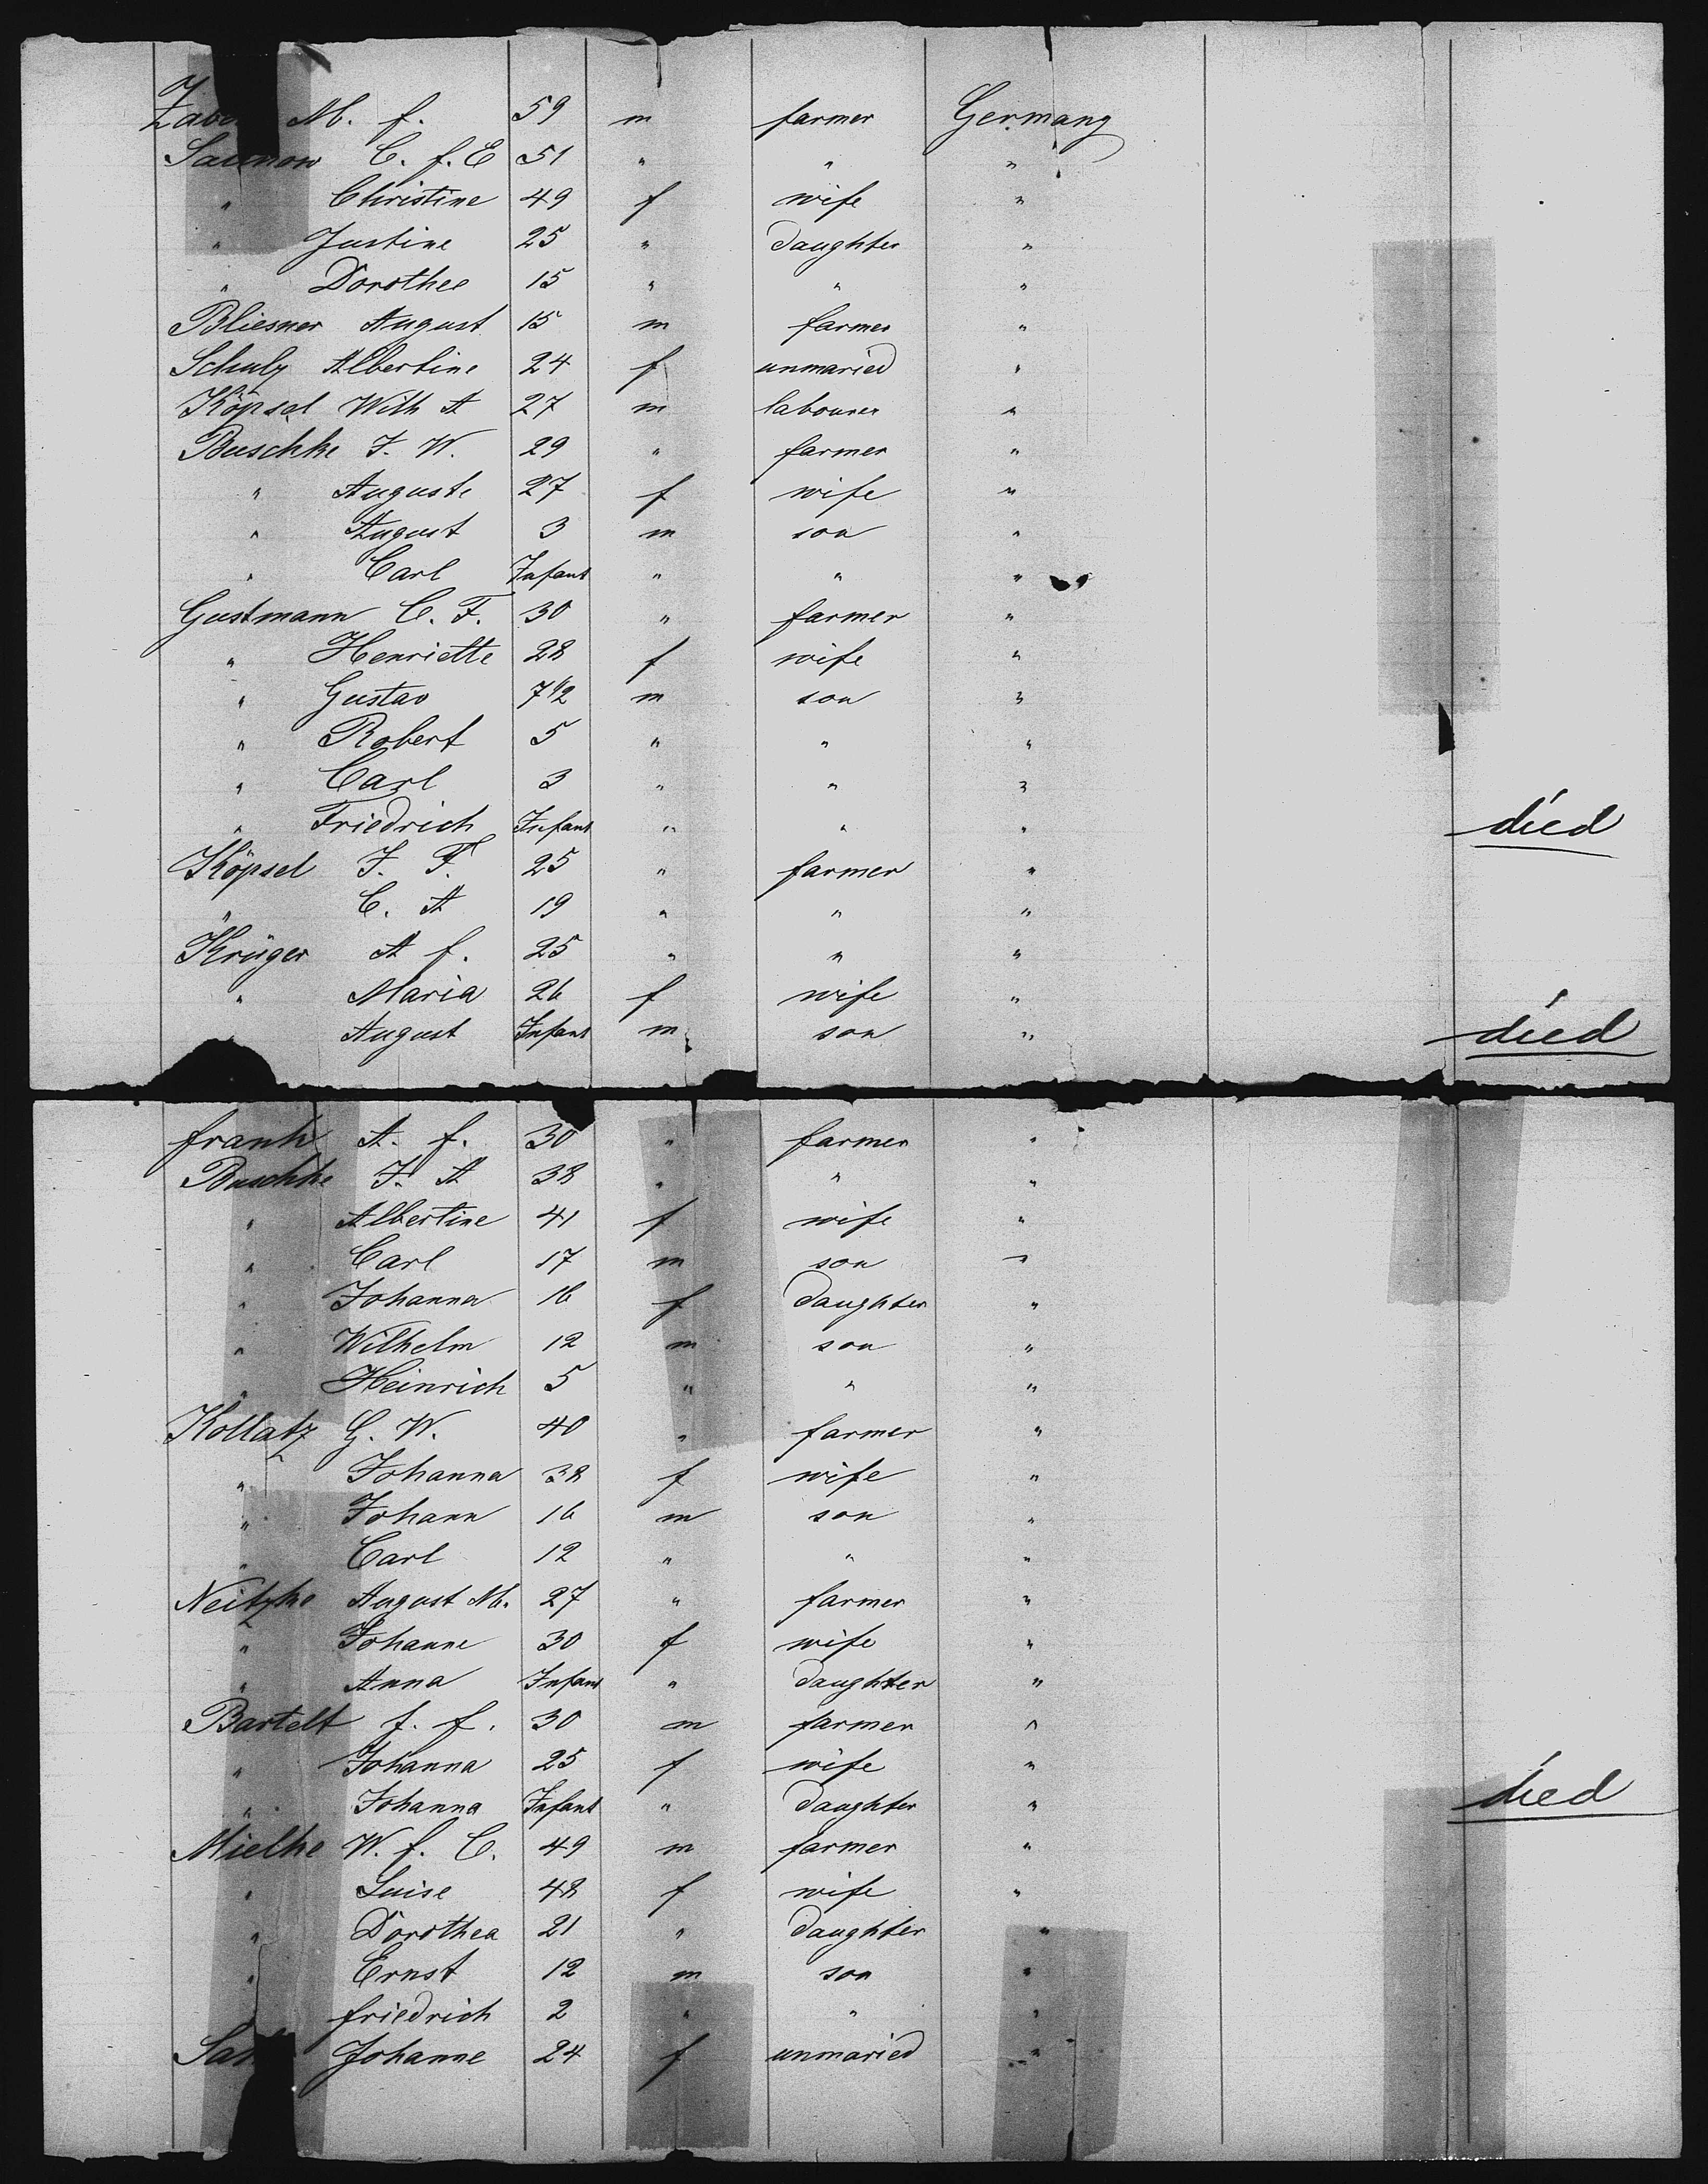 M. f. 59 m farmer Germany
Saumow C. f. E 51 " " "
" Christine 49 f wife "
" Justine 25 " daughter "
" Dorothee 15 " " "
Bliesner August 15 m farmer "
Schulz Albertine 24 f unmaried "
Köpsel Wilh A 27 m labourer "
Buschke F. W. 29 " farmer "
" Auguste 27 f wife "
" August 3 m son "
" Carl Infant " " "
Gustmann C. F. 30 " farmer "
" Henriette 28 f wife "
" Gustav 7 1/2 m son "
" Robert 5 " " "
" Carl 3 " " "
" Friedrich Infant " " " died
Köpsel F. F. 25 " farmer "
" C. A 19 " " "
Krüger A f. 25 " " "
" Maria 26 f wife "
August Infant m son " died
frank A. f. 30 " farmer "
Buschke F. A 38 " " "
" Albertine 41 f wife "
" Carl 17 m son "
" Johanna 16 f daughter "
" Wilhelm 12 m son "
" Heinrich 5 " " "
Kollatz G. W. 40 " farmer "
" Johanna 38 f wife "
" Johann 16 m son "
" Carl 12 " " "
Neitzke August M. 27 " farmer "
" Johanne 30 f wife "
" Anna Infant " daughter "
Bartelt f. f. 30 m farmer "
" Johanna 25 f wife "
" Johanna Infant " daughter " died
Mielke W. f. C. 49 m farmer "
" Luise 48 f wife "
" Dorothea 21 " daughter "
" Ernst 12 m son "
friedrich 2 " " "
Johanne 24 f unmaried "